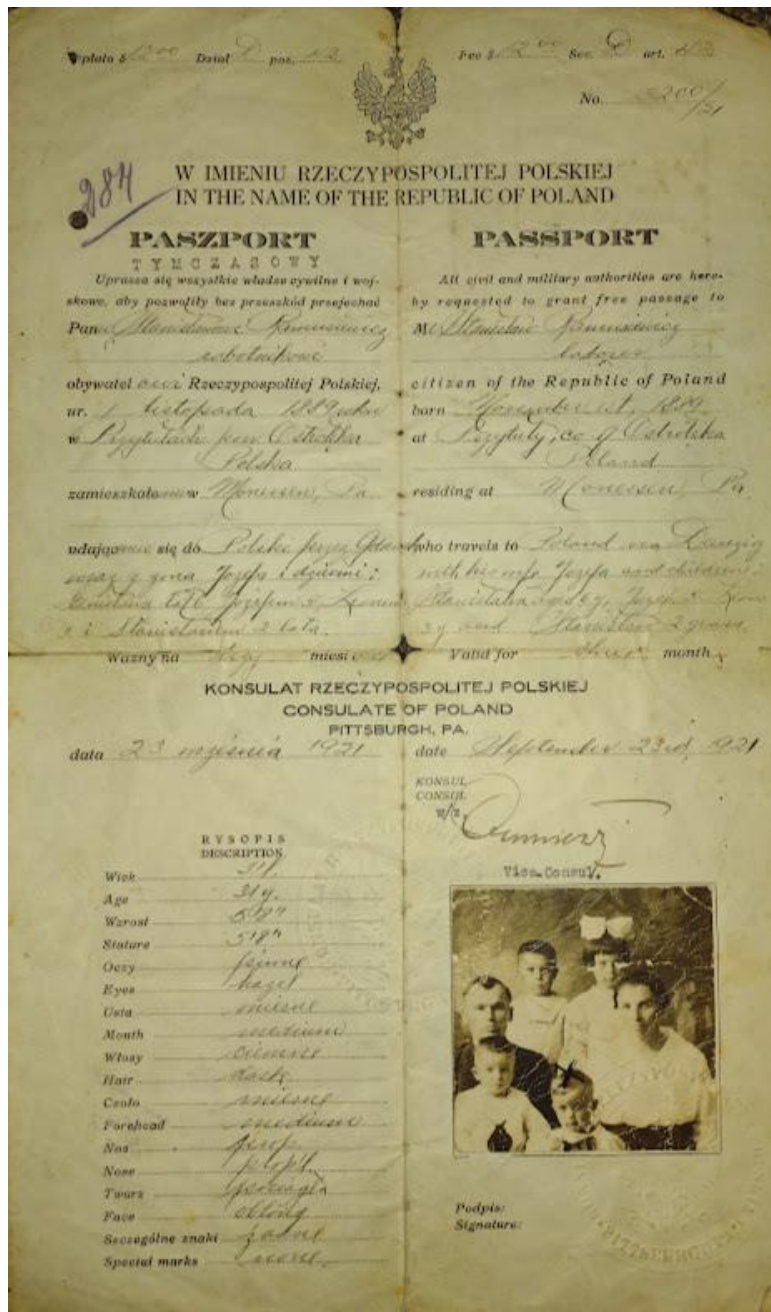 Opłata $ 12 00 Dział D poz. 43
Fee $ 12 00 Sec. D art. 43
No. 3200/21
284
W IMIENIU RZECZYPOSPOLITEJ POLSKIEJ
IN THE NAME OF THE REPUBLIC OF POLAND
PASZPORT
TYMCZASOWY
Uprasza się wszystkie władze cywilne i woj-
skowe, aby pozwoliły bez przeszkód przejechać
Pan Stanisławowi
robotnikowi
obywatel owi Rzeczypospolitej Polskiej,
ur. 1 listopada 1889 roku
w Przytułach pow Ostrołęka
Polska
zamieszkałemu w Monessen, Pa
udającemu się do Polski przez Gdańsk
wraz z żoną Józefą i dziećmi:
lat Józefem
i Stanisławem 2 lata.
Ważny na miesiące
PASSPORT
All civil and military authorities are here-
by requested to grant free passage to
Mr Stanisław
laborer
citizen of the Republic of Poland
born November 1st, 1889
at Przytuły, co. of Ostrołęka
Poland
residing at Monessen, Pa.
who travels to Poland via Danzig
with his wife Józefa and children:
Józef
3 y and Stanisław 2 years.
Valid for month
KONSULAT RZECZYPOSPOLITEJ POLSKIEJ
CONSULATE OF POLAND
PITTSBURGH, PA.
data 23 września 1921
date September 23rd, 1921
KONSUL
CONSUL
w/z.
Vice-Consul.
RYSOPIS
DESCRIPTION
Wiek 31 l.
Age 31 y.
Wzrost 5'8"
Stature 5'8"
Oczy piwne
Eyes hazel
Usta mierne
Mouth medium
Włosy ciemne
Hair dark
Czoło mierne
Forehead medium
Nos prop.
Nose prop'l.
Twarz pociągła
Face oblong
Szczególne znaki żadne
Special marks none.
Podpis:
Signature:
PITTSBURGH